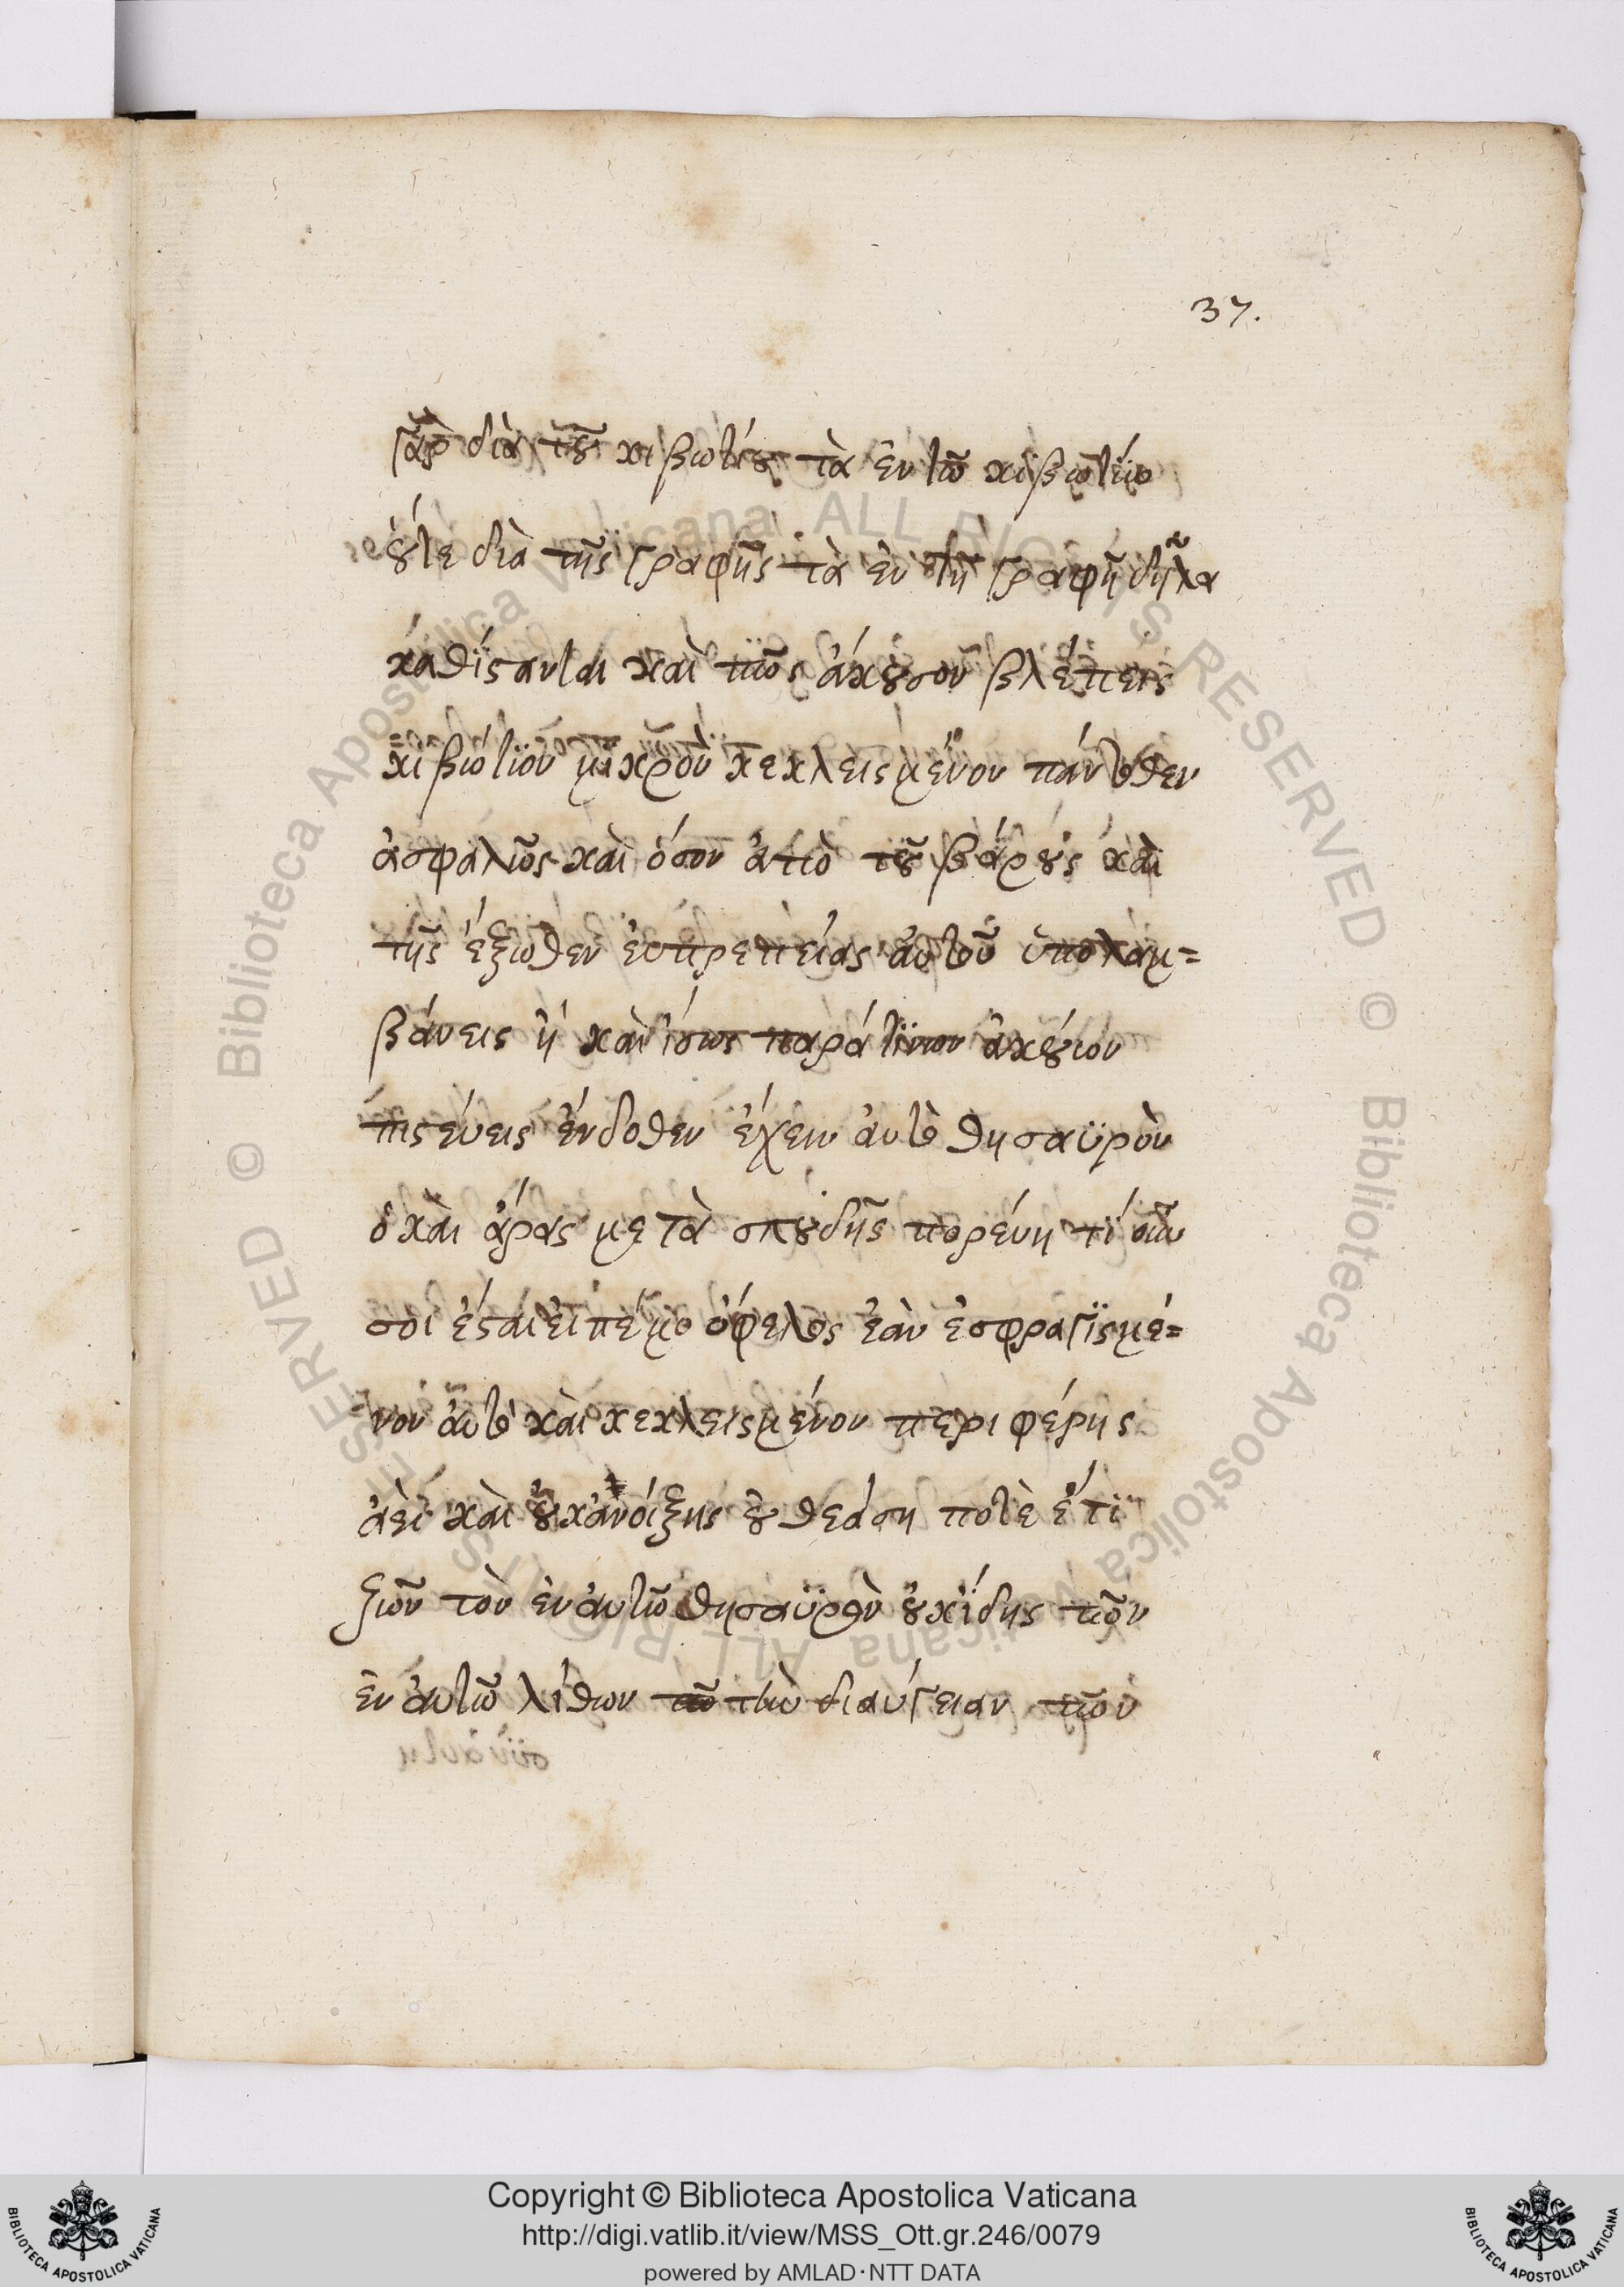 37.
γὰρ διὰ τοῦ κιβωτίου τὰ ἐν τῶ κιβωτίω
οὔτε διὰ τῆς γραφῆς τὰ ἐν τῆ γραφῆ δῆλα
καθίστανται καὶ πῶς ἄκουσον βλέπεις
κιβώτιον μικρὸν κεκλεισμένον πάντοθεν
ἀσφαλῶς καὶ ὅσον ἀπὸ τοῦ βάρους καὶ
τῆς ἔξωθεν εὐπρεπείας αὐτοῦ ὑπολαμ=
βάνεις ἢ καὶ ἴσως παρά τινων ἀκούων
πιστεύεις ἔνδοθεν ἔχειν αὐτὸ θησαυρὸν
ὃ καὶ ἄρας μετὰ σπουδῆς πορεύη τί οὖν
σοι ἔσται εἰπέ μοι ὄφελος ἐὰν ἐσφραγισμέ=
νον αὐτὸ καὶ κεκλεισμένον περιφέρης
ἀεὶ καὶ οὐκ ἀνοίξης οὐ θεάση ποτὲ ἔτι
ζῶν τὸν ἐν αὐτῶ θησαυρὸν οὐκ ἴδης τῶν
ἐν αὐτῶ λίθων τὴν διαύγειαν τῶν
Copyright © Biblioteca Apostolica Vaticana
http://digi.vatlib.it/view/MSS_Ott.gr.246/0079
powered by AMLAD·NTT DATA
BIBLIOTECA APOSTOLICA VATICANA
BIBLIOTECA APOSTOLICA VATICANA
© Biblioteca Apostolica Vaticana ALL RIGHTS RESERVED
© Biblioteca Apostolica Vaticana ALL RIGHTS RESERVED